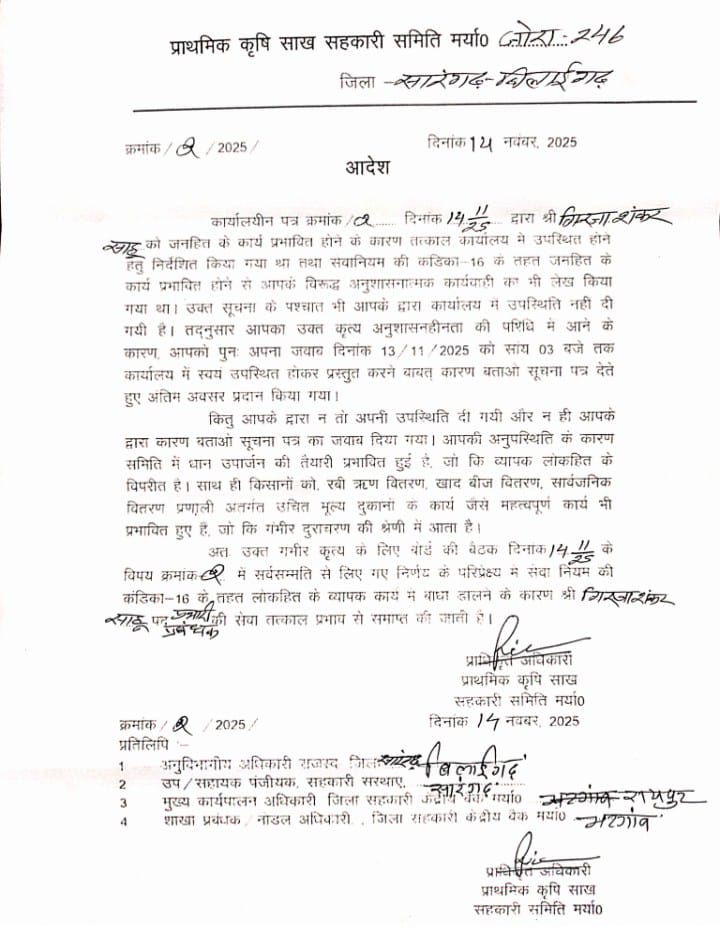 प्राथमिक कृषि साख सहकारी समिति मर्या0 जोरा-246
जिला -सारंगढ़-बिलाईगढ़
क्रमांक / 2 / 2025 / दिनांक 14 नवंबर, 2025
आदेश
कार्यालयीन पत्र क्रमांक / 2 दिनांक 14 11/25 द्वारा श्री गिरजा शंकर
साहू को जनहित के कार्य प्रभावित होने के कारण तत्काल कार्यालय मे उपस्थित होने
हेतु निर्देशित किया गया था तथा सेवानियम की कंडिका-16 के तहत जनहित के
कार्य प्रभावित होने से आपके विरूद्ध अनुशासनात्मक कार्यवाही का भी लेख किया
गया था। उक्त सूचना के पश्चात भी आपके द्वारा कार्यालय में उपस्थिति नही दी
गयी है। तद्नुसार आपका उक्त कृत्य अनुशासनहीनता की परिधि में आने के
कारण, आपको पुनः अपना जवाब दिनांक 13/11/2025 को सांय 03 बजे तक
कार्यालय में स्वयं उपस्थित होकर प्रस्तुत करने बाबत् कारण बताओ सूचना पत्र देते
हुए अंतिम अवसर प्रदान किया गया।
किंतु आपके द्वारा न तो अपनी उपस्थिति दी गयी और न ही आपके
द्वारा कारण बताओ सूचना पत्र का जवाब दिया गया। आपकी अनुपस्थिति के कारण
समिति में धान उपार्जन की तैयारी प्रभावित हुई है, जो कि व्यापक लोकहित के
विपरीत है। साथ ही किसानों को, रबी ऋण वितरण, खाद बीज वितरण, सार्वजनिक
वितरण प्रणाली अंतर्गत उचित मूल्य दुकानों के कार्य जैसे महत्वपूर्ण कार्य भी
प्रभावित हुए है, जो कि गंभीर दुराचरण की श्रेणी में आता है।
अतः उक्त गंभीर कृत्य के लिए बोर्ड की बैठक दिनांक 14 11/25 के
विषय क्रमांक 2 में सर्वसम्मति से लिए गए निर्णय के परिप्रेक्ष्य में सेवा नियम की
कंडिका-16 के तहत लोकहित के व्यापक कार्य में बाधा डालने के कारण श्री गिरजाशंकर
साहू पद प्रभारी प्रबंधक की सेवा तत्काल प्रभाव से समाप्त की जाती है।
प्राधिकृत अधिकारी
प्राथमिक कृषि साख
सहकारी समिति मर्या0
क्रमांक / 2 / 2025 / दिनांक 14 नवंबर, 2025
प्रतिलिपि :-
1 अनुविभागीय अधिकारी राजस्व जिला सारंगढ़ बिलाईगढ़
2 उप/सहायक पंजीयक, सहकारी संस्थाएं, सारंगढ़
3 मुख्य कार्यपालन अधिकारी जिला सहकारी केंद्रीय बैंक मर्या0 भटगांव रायपुर
4 शाखा प्रबंधक/नोडल अधिकारी, जिला सहकारी केंद्रीय बैंक मर्या0 भटगांव
प्राधिकृत अधिकारी
प्राथमिक कृषि साख
सहकारी समिति मर्या0